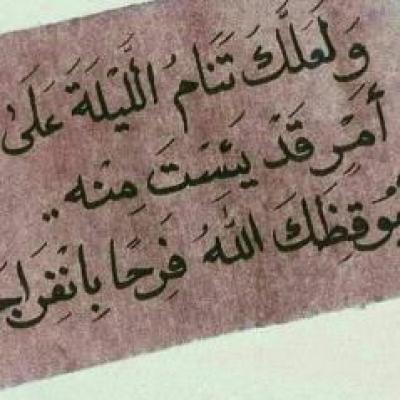 وَلَعَلَّكَ تَنَامُ اللَّيْلَةَ عَلَىٰ
أَمْرٍ قَدْ يَئِسْتَ مِنْه ..
يُوقِظَكَ اللهُ فَرِحًا بِانْفِرَاجـ